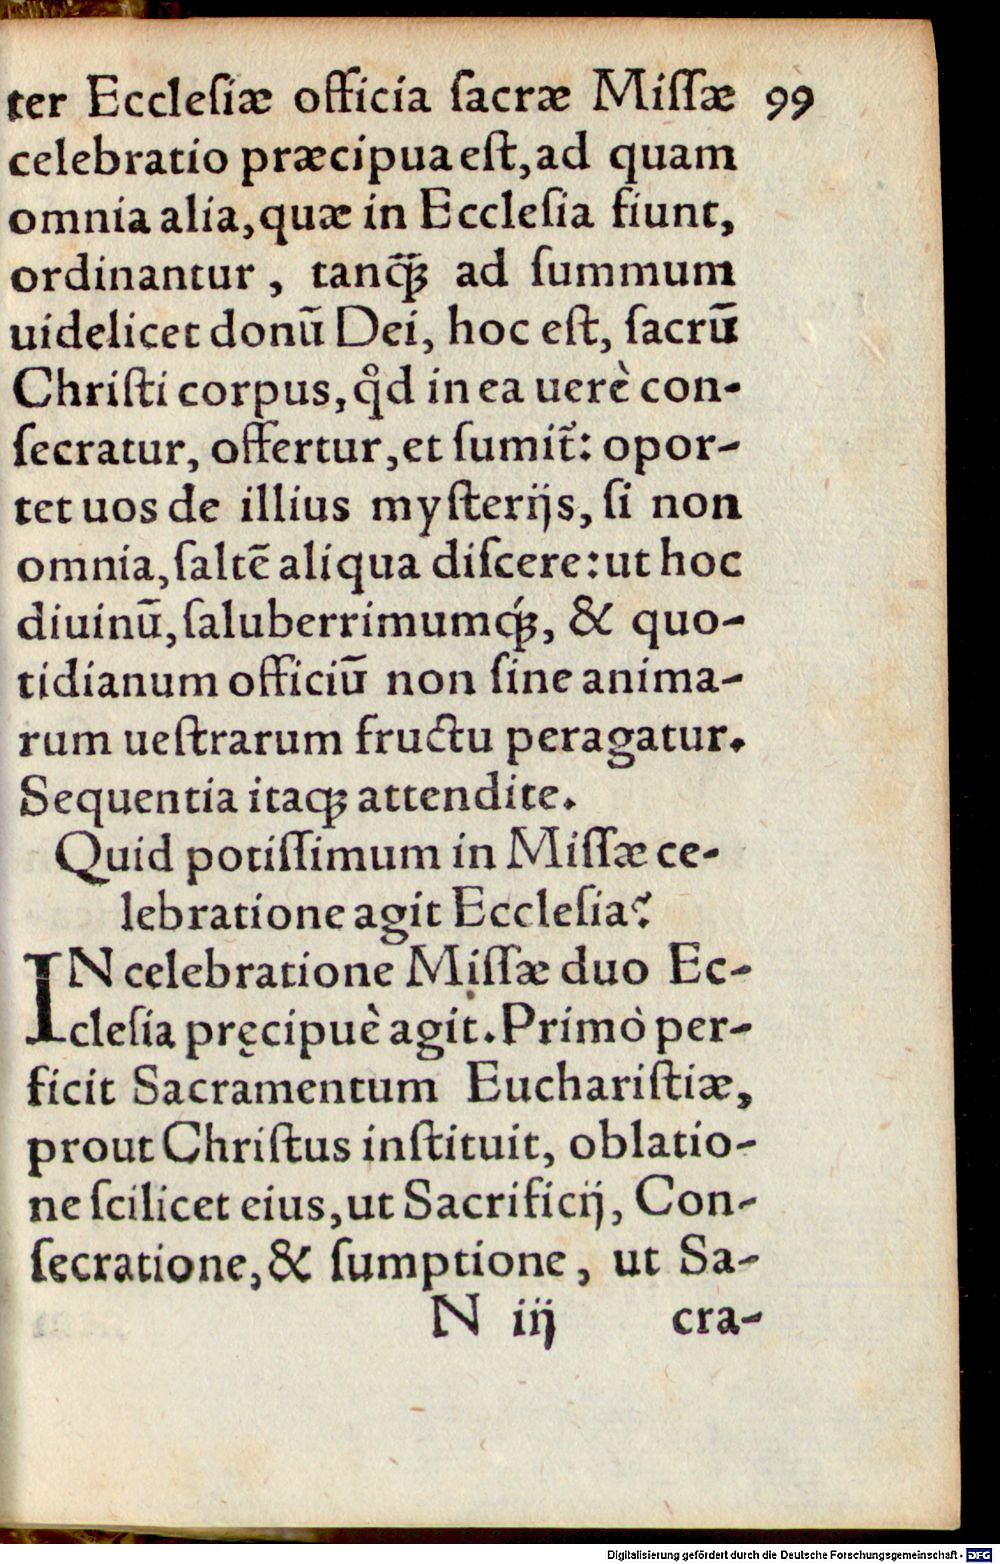 ter Eccleſiæ officia ſacræ Miſſæ 99
celebratio præcipua eſt, ad quam
omnia alia, quæ in Eccleſia fiunt,
ordinantur, tanq̃ꝫ ad ſummum
uidelicet donũ Dei, hoc eſt, ſacrũ
Chriſti corpus, qͦd in ea uerè con-
ſecratur, offertur, et ſumit᷑: opor-
tet uos de illius myſterijs, ſi non
omnia, ſaltẽ aliqua diſcere: ut hoc
diuinũ, ſaluberrimumq́ꝫ, & quo-
tidianum officiũ non ſine anima-
rum ueſtrarum fructu peragatur.
Sequentia itaqꝫ attendite.
Quid potiſſimum in Miſſæ ce-
lebratione agit Eccleſia?
IN celebratione Miſſæ duo Ec-
cleſia pręcipuè agit. Primò per-
ficit Sacramentum Euchariſtiæ,
prout Chriſtus inſtituit, oblatio-
ne ſcilicet eius, ut Sacrificij, Con-
ſecratione, & ſumptione, ut Sa-
N iij cra-
Digitalisierung gefördert durch die Deutsche Forschungsgemeinschaft - DFG